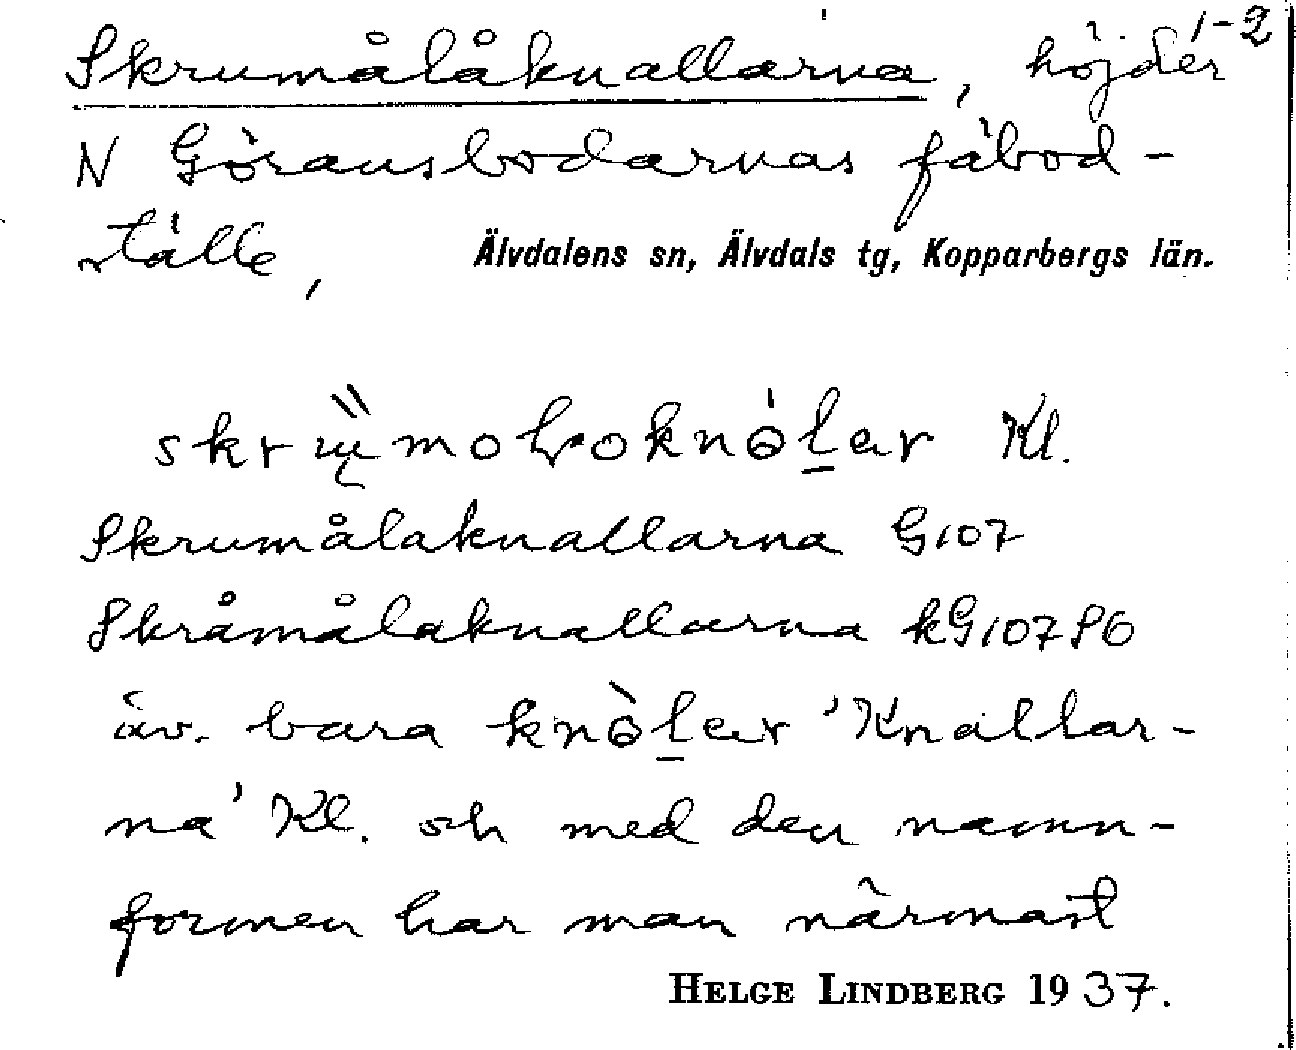 1-2
Skrumålåknallarna, höjder
N Göransbodarnas fäbod-
ställe, Älvdalens sn, Älvdals tg, Kopparbergs län.
Kl.
Skrumålaknallarna G107
Skråmålaknallarna kG107S6
äv. bara 'Knallar-
na' Kl. och med den namn-
formen har man närmast
HELGE LINDBERG 1937.